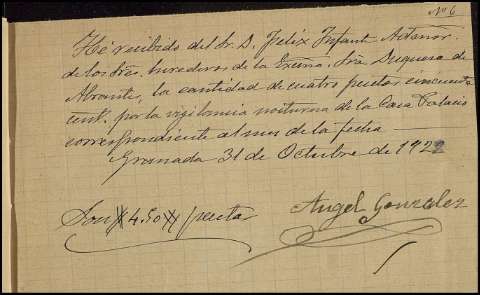 Nº 6
He recibido del Sr. D. Felix Infant Admor.
de los Sres. herederos de la Excma. Sra Duquesa de
Abrantes, la cantidad de cuatro pesetas cincuenta
cent. por la vigilancia nocturna de la Casa Palacio
correspondiente al mes de la fecha
Granada 31 de Octubre de 1922
Son # 4.50 # pesetas
Angel Gonzalez